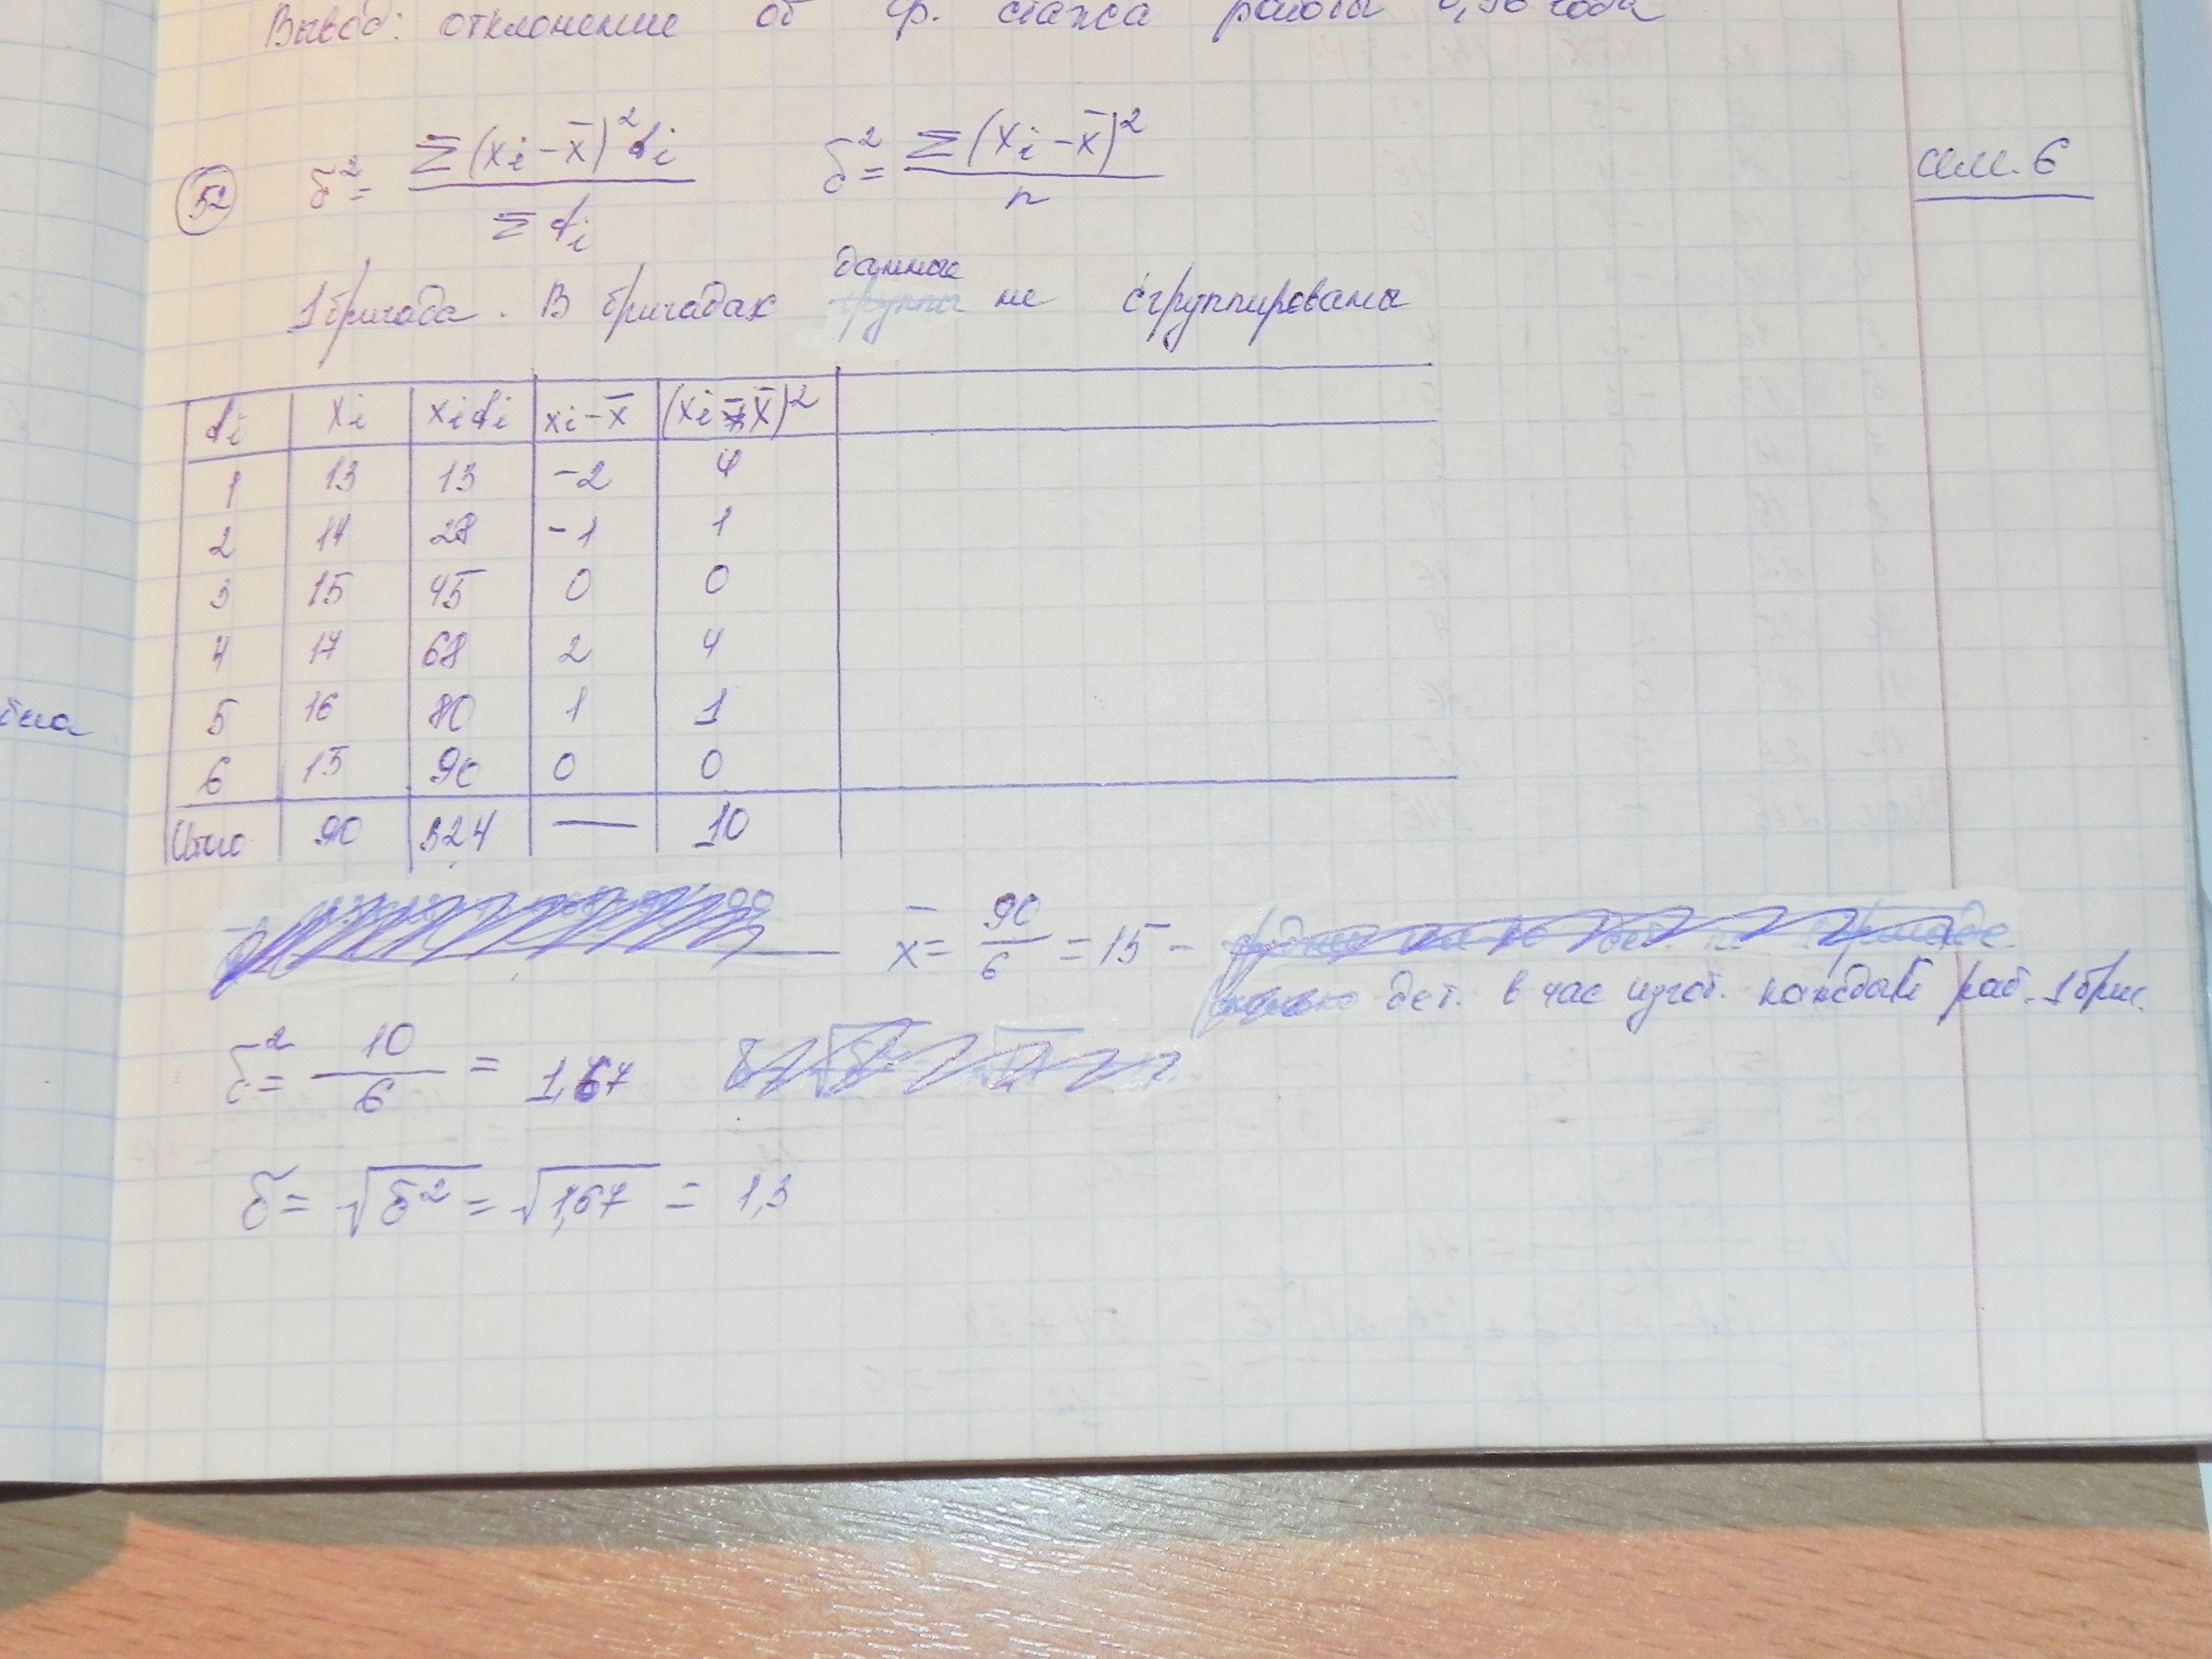 Вывод: отклонение от ср. стажа работы 0,98 года
52 δ² = Σ(xi-x̄)²fi / Σfi δ² = Σ(xi-x̄)² / n
сем. 6
данные
1 бригада. В бригадах группы не сгруппированы
fi xi xifi xi-x̄ (xi-x̄)²
1 13 13 -2 4
2 14 28 -1 1
3 15 45 0 0
4 17 68 2 4
5 16 80 1 1
6 15 90 0 0
Итого 90 324 — 10
x̄ = 90/6 = 15 -
дет. в час изгот. каждый раб. 1 бриг.
δ² = 10/6 = 1,67
δ = √δ² = √1,67 = 1,3